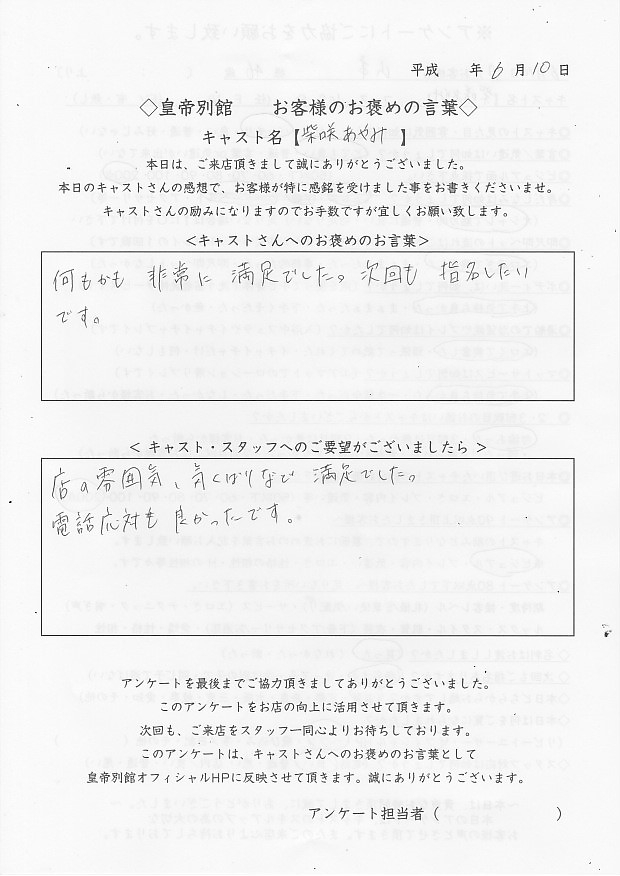 平成　　年 6 月 10 日
◇皇帝別館　　お客様のお褒めの言葉◇
キャスト名【柴咲あやみ　】
本日は、ご来店頂きまして誠にありがとうございました。
本日のキャストさんの感想で、お客様が特に感銘を受けました事をお書きくださいませ。
キャストさんの励みになりますのでお手数ですが宜しくお願い致します。
<キャストさんへのお褒めのお言葉>
何もかも 非常に 満足でした。次回も 指名したい
です。
< キャスト・スタッフへのご要望がございましたら >
店の雰囲気、気くばりなど 満足でした。
電話応対も 良かったです。
アンケートを最後までご協力頂きましてありがとうございました。
このアンケートをお店の向上に活用させて頂きます。
次回も、ご来店をスタッフ一同心よりお待ちしております。
このアンケートは、キャストさんへのお褒めのお言葉として
皇帝別館オフィシャルHPに反映させて頂きます。誠にありがとうございます。
アンケート担当者（　　　　　　　）